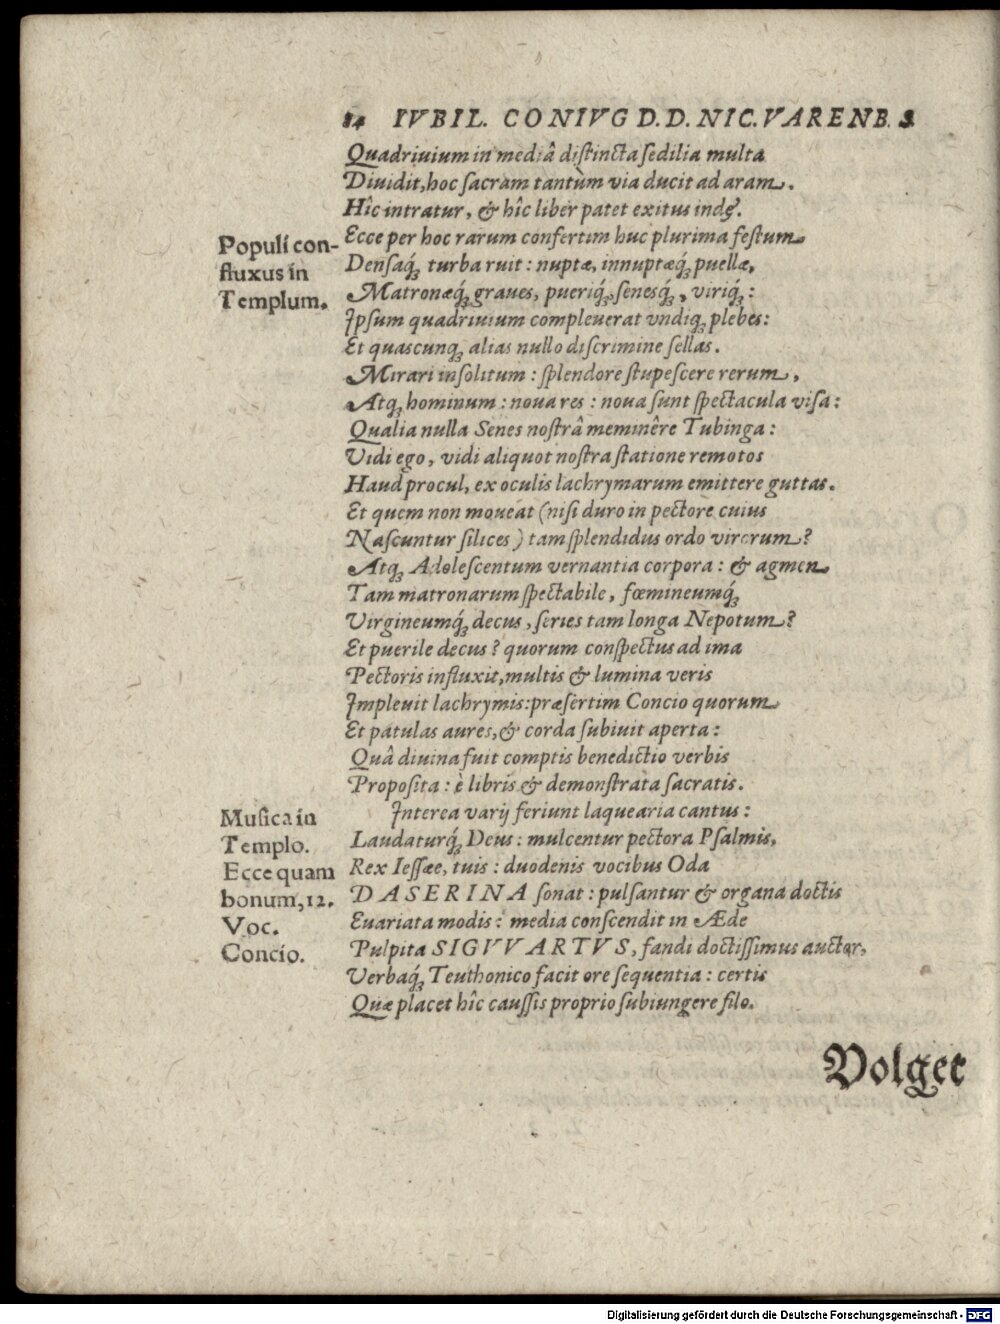 84 IVBIL. CONIVG D.D. NIC. VARENB. S
Quadriuium in mediâ distincta sedilia multa
Diuidit, hoc sacram tantùm via ducit ad aram.
Hîc intratur, & hîc liber patet exitus indę́.
Populi con-
fluxus in
Templum.
Ecce per hoc rarum confertim huc plurima festum
Densaq́ꝫ turba ruit: nuptæ, innuptæq́ꝫ puellæ,
Matronæq́ꝫ graues, pueriq́ꝫ, senesq́ꝫ, viriq́ꝫ:
Ipsum quadriuium compleuerat vndiqꝫ plebes:
Et quascunqꝫ alias nullo discrimine sellas.
Mirari insolitum: splendore stupescere rerum,
Atqꝫ hominum: noua res: noua sunt spectacula visa:
Qualia nulla Senes nostrâ meminêre Tubinga:
Vidi ego, vidi aliquot nostra statione remotos
Haud procul, ex oculis lachrymarum emittere guttas.
Et quem non moueat (nisi duro in pectore cuius
Nascuntur silices) tam splendidus ordo virorum?
Atqꝫ Adolescentum vernantia corpora: & agmen
Tam matronarum spectabile, fœmineumq́ꝫ
Virgineumq́ꝫ decus, series tam longa Nepotum?
Et puerile decus? quorum conspectus ad ima
Pectoris influxit, multis & lumina veris
Impleuit lachrymis: præsertim Concio quorum
Et patulas aures, & corda subiuit aperta:
Quâ diuina fuit comptis benedictio verbis
Proposita: è libris & demonstrata sacratis.
Musica in
Templo.
Ecce quam
bonum, 12.
Voc.
Concio.
Interea varij feriunt laquearia cantus:
Laudaturq́ꝫ Deus: mulcentur pectora Psalmis,
Rex Iessæe, tuis: duodenis vocibus Oda
DASERINA sonat: pulsantur & organa doctis
Euariata modis: media conscendit in Æde
Pulpita SIGVVARTVS, fandi doctissimus auctor,
Verbaq́ꝫ Teuthonico facit ore sequentia: certis
Quæ placet hîc caussis proprio subiungere filo.
Volget
Digitalisierung gefördert durch die Deutsche Forschungsgemeinschaft - DFG